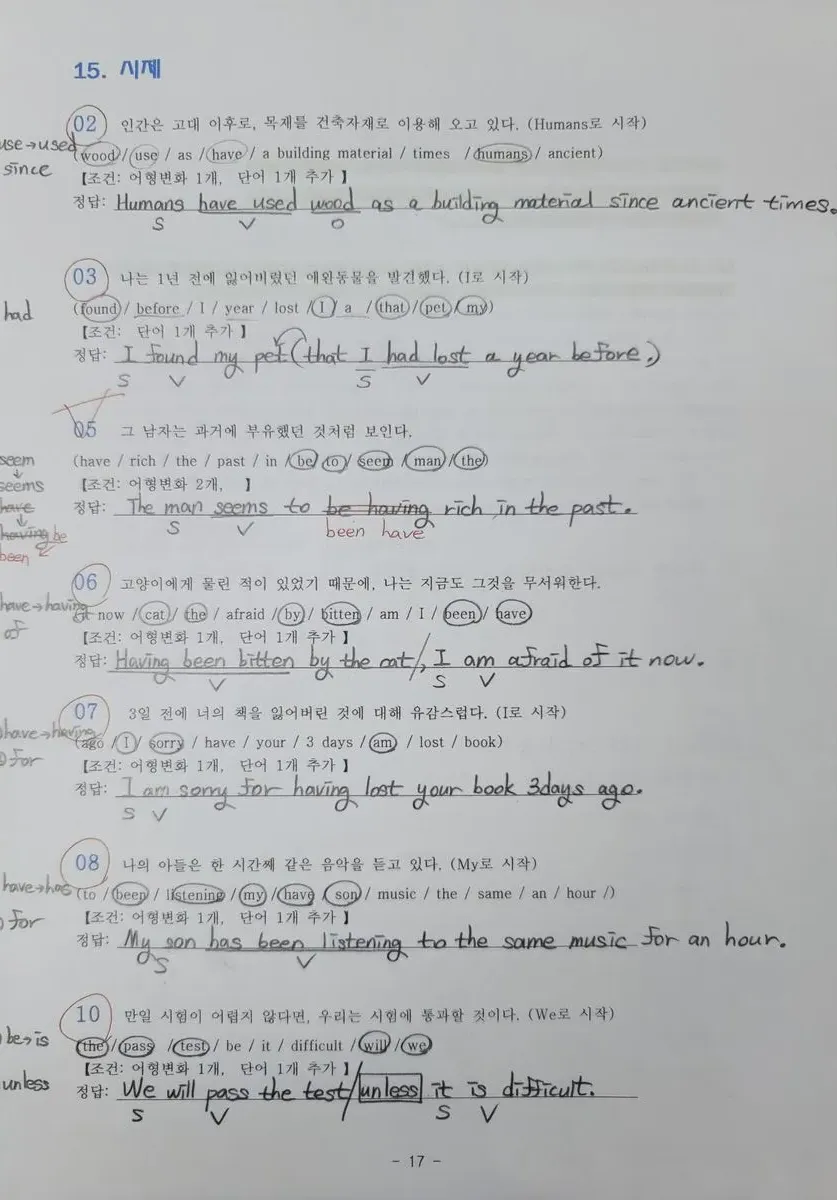 15. 시제
02 인간은 고대 이후로, 목재를 건축자재로 이용해 오고 있다. (Humans로 시작)
use→used
(wood / use / as / have / a building material / times / humans / ancient)
since
【조건: 어형변화 1개, 단어 1개 추가 】
정답: Humans have used wood as a building material since ancient times.
S V O
03 나는 1년 전에 잃어버렸던 애완동물을 발견했다. (I로 시작)
had (found / before / I / year / lost / I / a / that / pet / my)
【조건: 단어 1개 추가 】
정답: I found my pet (that I had lost a year before.)
S V S V
05 그 남자는 과거에 부유했던 것처럼 보인다.
seem (have / rich / the / past / in / be / to / seem / man / the)
↓
seems 【조건: 어형변화 2개, 】
have
정답: The man seems to be having rich in the past.
↓
having be
S V been have
been
06 고양이에게 물린 적이 있었기 때문에, 나는 지금도 그것을 무서워한다.
have→having now / cat / the / afraid / by / bitten / am / I / been / have)
of
【조건: 어형변화 1개, 단어 1개 추가 】
정답: Having been bitten by the cat/, I am afraid of it now.
V S V
07 3일 전에 너의 책을 잃어버린 것에 대해 유감스럽다. (I로 시작)
have→having
(ago / I / sorry / have / your / 3 days / am / lost / book)
for
【조건: 어형변화 1개, 단어 1개 추가 】
정답: I am sorry for having lost your book 3days ago.
S V
08 나의 아들은 한 시간째 같은 음악을 듣고 있다. (My로 시작)
have→has (to / been / listening / my / have / son / music / the / same / an / hour /)
for
【조건: 어형변화 1개, 단어 1개 추가 】
정답: My son has been listening to the same music for an hour.
S V
10 만일 시험이 어렵지 않다면, 우리는 시험에 통과할 것이다. (We로 시작)
be→is (the / pass / test / be / it / difficult / will / we)
【조건: 어형변화 1개, 단어 1개 추가 】
unless
정답: We will pass the test/ unless it is difficult.
S V S V
- 17 -